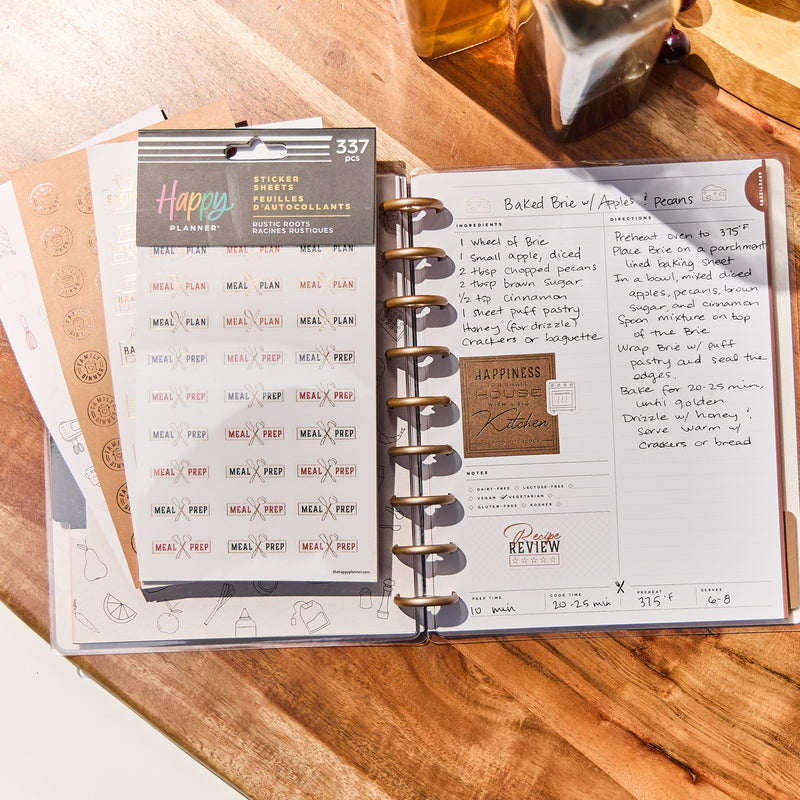 337
pcs
Happy
PLANNER®
STICKER
SHEETS
FEUILLES
D'AUTOCOLLANTS
RUSTIC ROOTS
RACINES RUSTIQUES
MEAL PLAN MEAL PLAN MEAL PLAN
MEAL PLAN MEAL PLAN MEAL PLAN
MEAL PLAN MEAL PLAN MEAL PLAN
MEAL PREP MEAL PREP MEAL PREP
MEAL PREP MEAL PREP MEAL PREP
MEAL PREP MEAL PREP MEAL PREP
MEAL PREP MEAL PREP MEAL PREP
MEAL PREP MEAL PREP MEAL PREP
MEAL PREP MEAL PREP MEAL PREP
thehappyplanner.com
FAMILY
DINNER
Baked Brie w/ Apples & Pecans
APPETIZERS
INGREDIENTS
1 Wheel of Brie
1 small apple, diced
2 tbsp chopped pecans
2 tbsp brown sugar
1/2 tsp cinnamon
1 sheet puff pastry
Honey (for drizzle)
Crackers or baguette
HAPPINESS
IS A SMALL
HOUSE
WITH A BIG
Kitchen
NOTES
DAIRY-FREE LACTOSE-FREE
VEGAN VEGETARIAN
GLUTEN-FREE KOSHER
Recipe
REVIEW
DIRECTIONS
Preheat oven to 375°F
Place Brie on a parchment
lined baking sheet
In a bowl, mixed diced
apples, pecans, brown
sugar, and cinnamon
Spoon mixture on top
of the Brie
Wrap Brie w/ puff
pastry and seal the
edges.
Bake for 20-25 min,
until golden
Drizzle w/ honey &
serve warm w/
crackers or bread
PREP TIME
10 min
COOK TIME
20-25 min
PREHEAT
375°F
SERVES
6-8